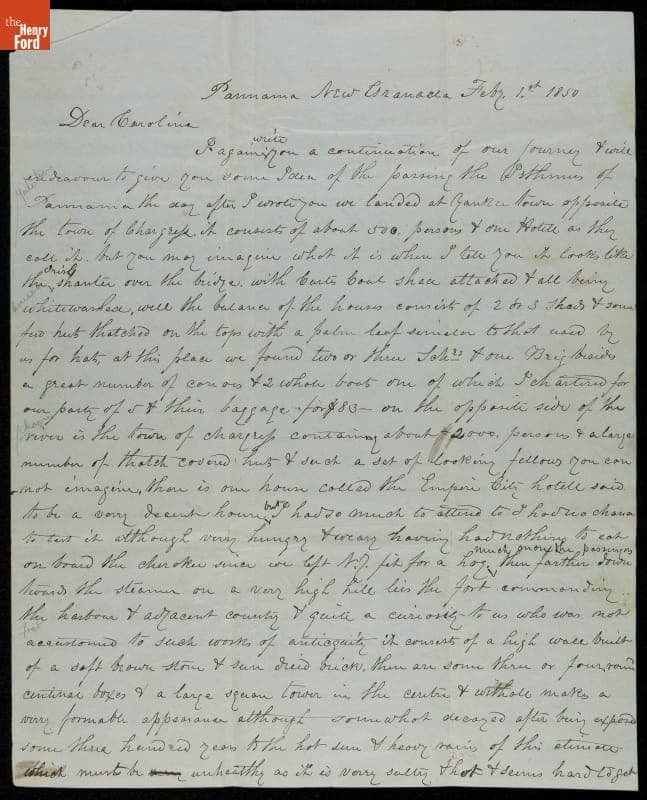 the
Henry
Ford
Pannama New Granada Feby. 1.st 1850
Dear Caroline
I again write you a continuation of our Journey & will
endeavour to give you some Idea of the passing the Isthmus of
Pannama the day after I wrote you we landed at Yankee town opposite
the town of Chargress it consists of about 500. persons & one Hotell as they
call it. but you may imagine what it is when I tell you it looks like
the Irish shanter over the bridge with Coal shed attached & all being
whitewashed, well the balance of the houses consists of 2 or 3 Sheds & some
few huts thatched on the tops with a palm leaf similar to that used by
us for hats, at this place we found two or three Schrs & one Brig besides
a great number of canoes & 2 whale boats one of which I chartered for
our party of 5 & their baggage for $83 — on the opposite side of the
river is the town of chargress containing about 2000. persons & a large
number of thatch covered huts & such a set of looking fellows you can
not imagine, there is one house called the Empire City hotell said
to be a very decent house but I had so much to attend to I had no chance
to test it although very hungry & weary having had nothing to eat
on board the cherokee since we left N.Y. fit for a hog, much more passengers then farther down
towards the steamer on a very high hill lies the fort commanding
the harbour & adjacent country & quite a curiosity to us who was not
accustomed to such works of antiquity it consists of a high wall built
of a soft brown stone & sun dried brick, there are some three or four
centinal boxes & a large square tower in the centre & withall makes a
very formable appearance although somewhat decayed after being exposed
some three hundred years to the hot sun & heavy rains of this climate
which must be very unhealthy as it is very sultry & hot & seems hard to get